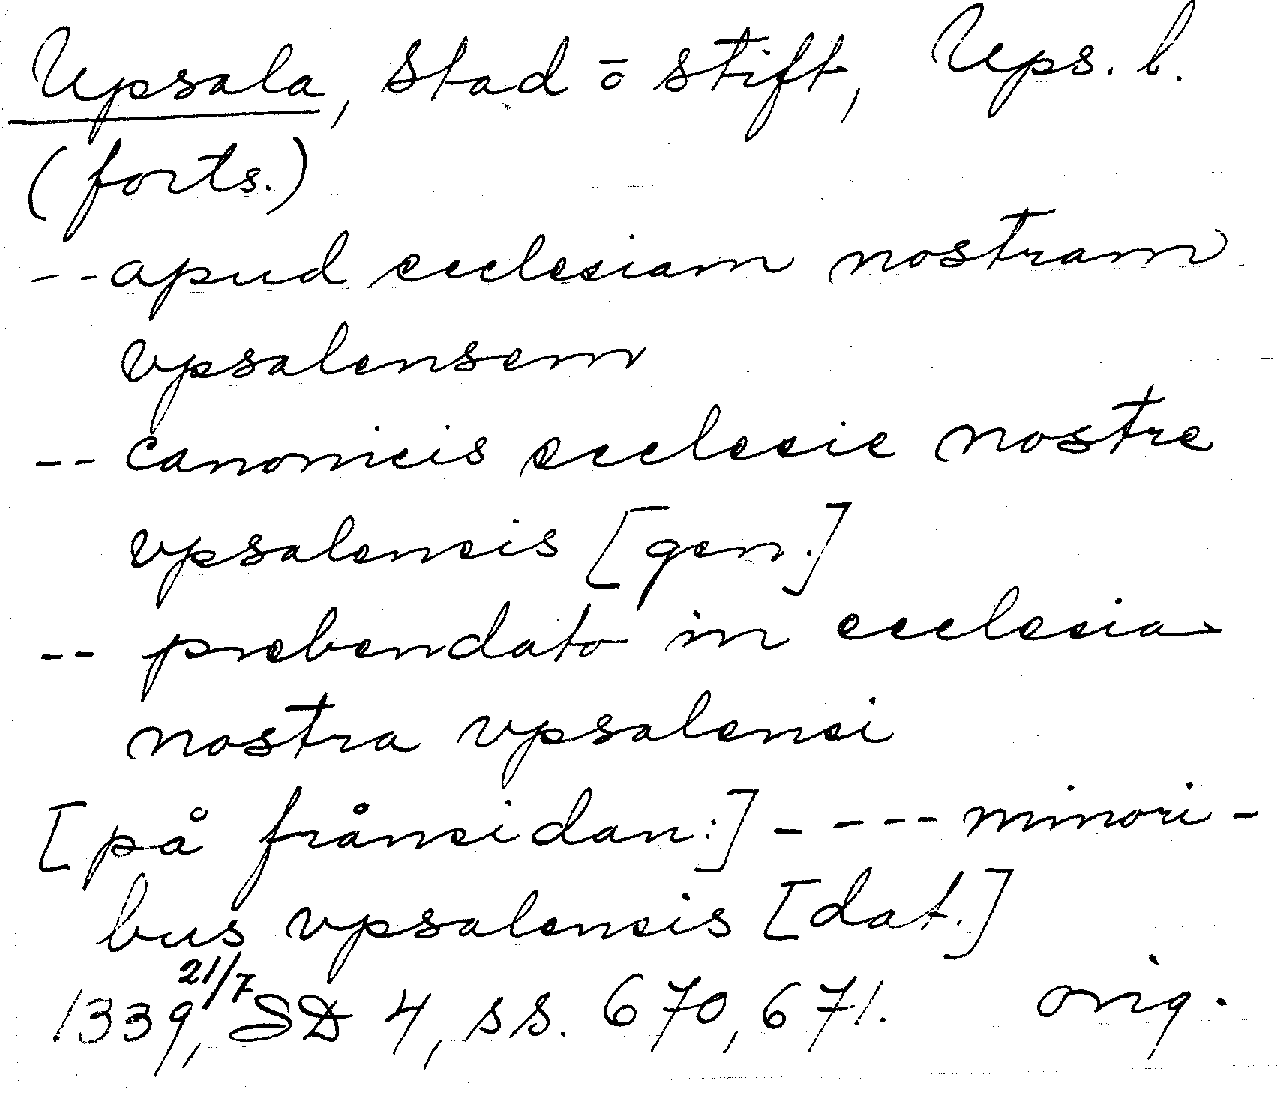 Upsala, stad ō stift, Ups. l.
(forts.)
-- apud ecclesiam nostram
vpsalensem
-- canonicis ecclesie nostre
vpsalensis [gen.]
-- prebendato in ecclesia
nostra vpsalensi
[på frånsidan:] ---- minori-
bus vpsalensis [dat.]
1339, 21/7 SD 4, ss. 670, 671. orig.